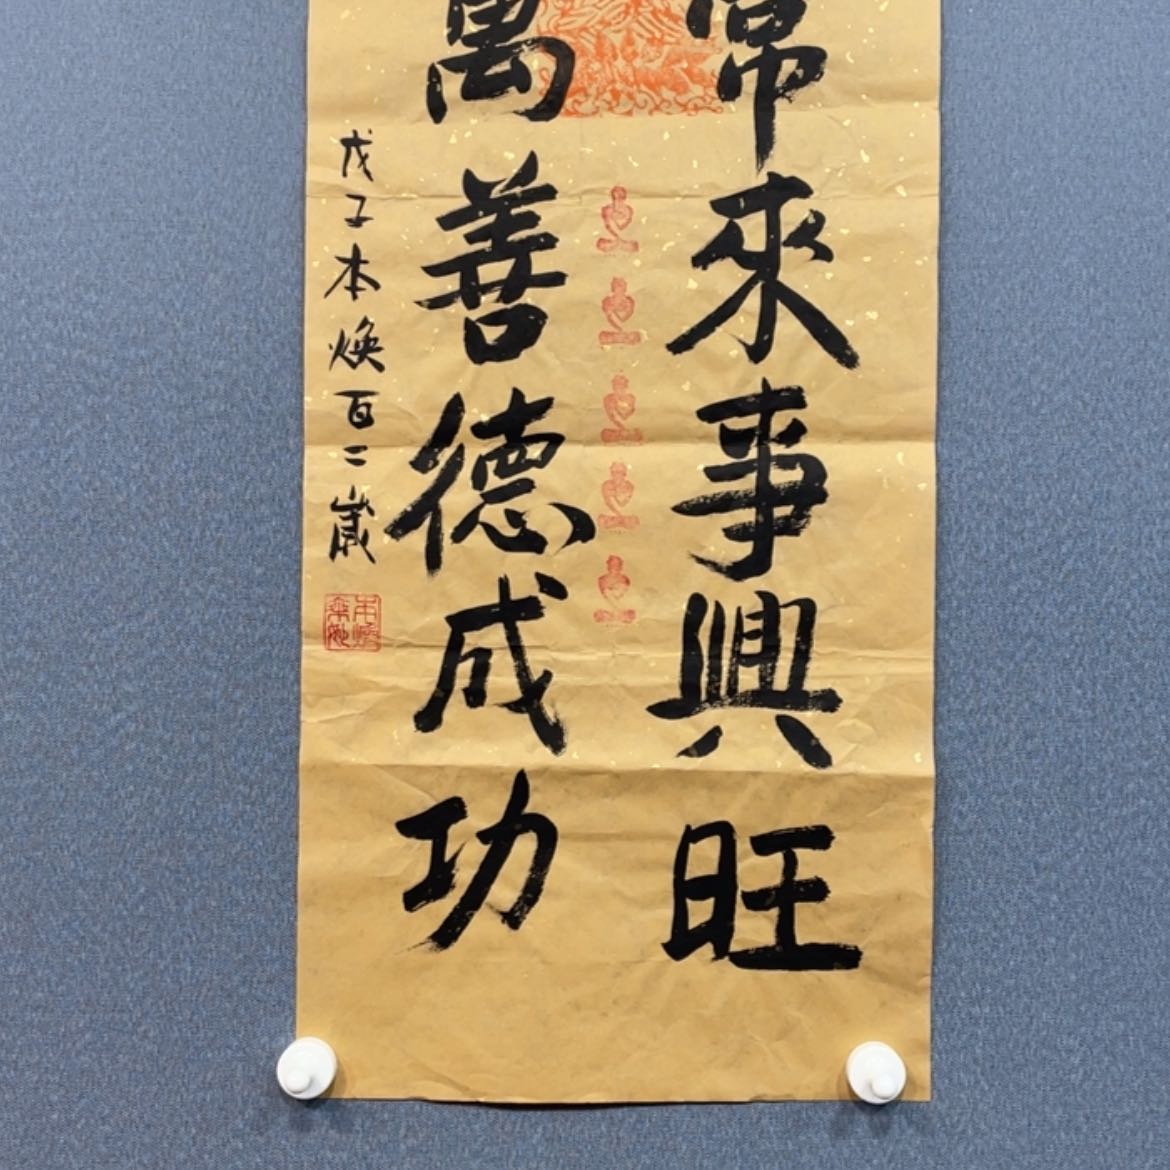 常來事興旺
萬善德成功
戊子本煥百二歲
本煥